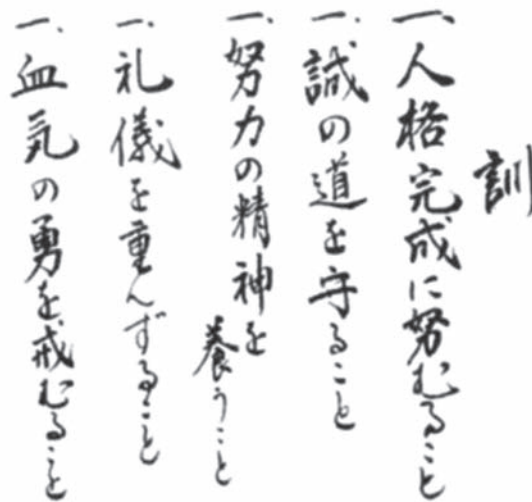 訓
一、人格完成に努むること
一、誠の道を守ること
一、努力の精神を
養うこと
一、礼儀を重んずること
一、血気の勇を戒むること